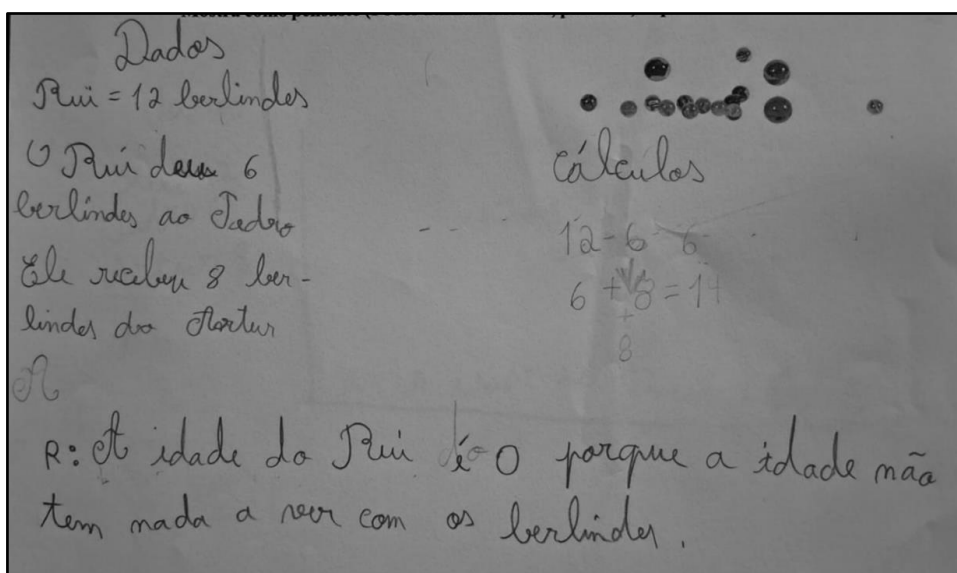 Dados
Rui = 12 berlindes
O Rui deu 6
berlindes ao Pedro
Ele recebeu 8 ber-
lindes do Artur
A
Cálculos
12 - 6 = 6
6 + 8 = 14
+
8
R: A idade do Rui é 0 porque a idade não
tem nada a ver com os berlindes.